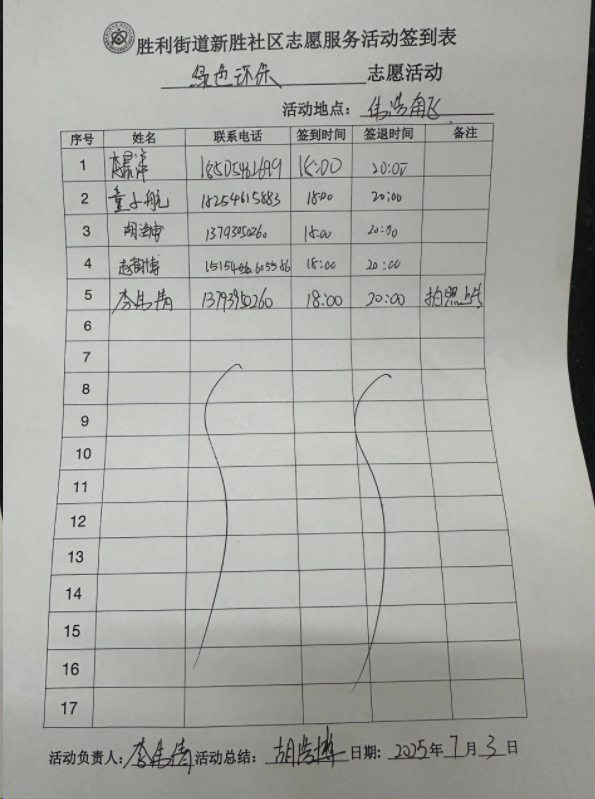 胜利街道新胜社区志愿服务活动签到表
绿色环保 志愿活动
活动地点：
序号 姓名 联系电话 签到时间 签退时间 备注
1 18:00 20:00
2 童子航 18254615883 18:00 20:00
3 胡浩博 13793950260 18:00 20:00
4 赵韵博 18:00 20:00
5 李伟倩 13793950260 18:00 20:00 拍照上传
6
7
8
9
10
11
12
13
14
15
16
17
活动负责人：李伟倩 活动总结：胡浩博 日期：2025年7月3日